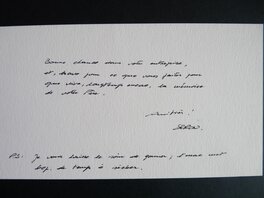 Bonne chance dans votre entreprise,
et, bravo pour ce que vous faites pour
que vive, longtemps encore, la mémoire
de votre Père.
Amitiés !
P.S: Je vous laisse le soin de
trop de temps à